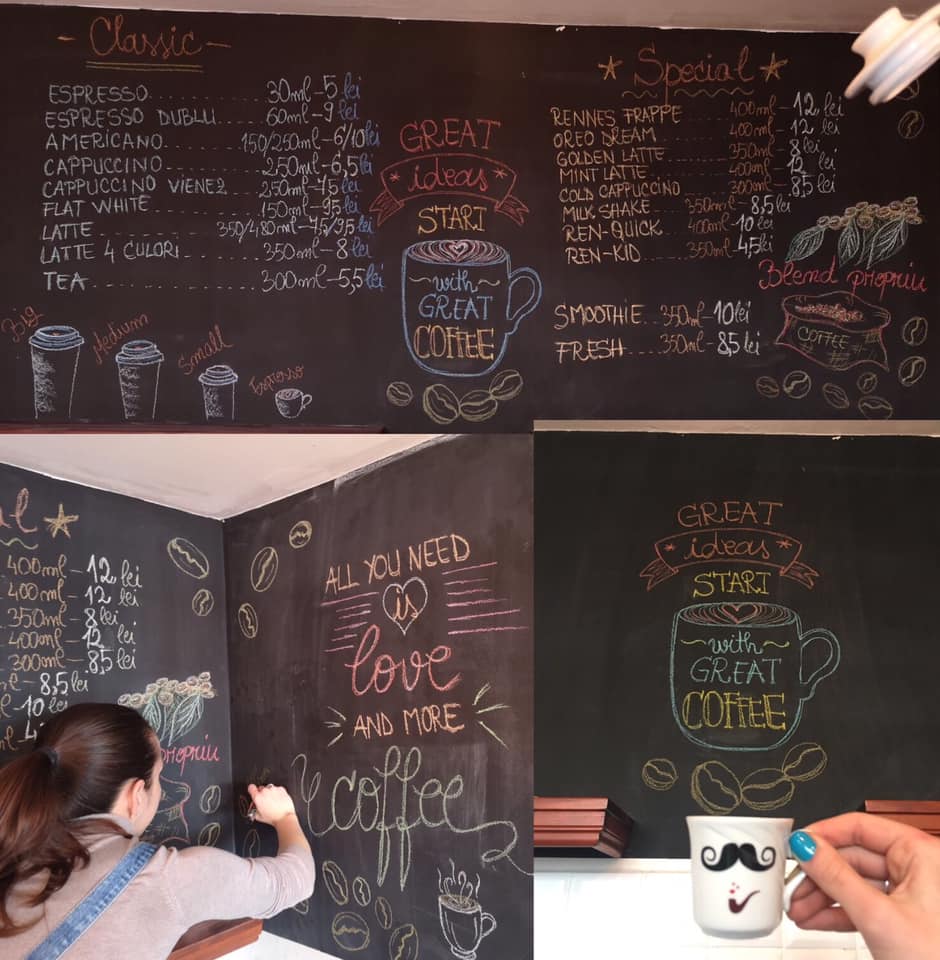 - Classic -
ESPRESSO........30ml-5 lei
ESPRESSO DUBLU.....60ml-9 lei
AMERICANO........150/250ml-6/10lei
CAPPUCCINO........250ml-6,5 lei
CAPPUCCINO VIENEZ..250ml-7,5 lei
FLAT WHITE........150ml-9,5 lei
LATTE........350/480ml-7,5/9,5 lei
LATTE 4 CULORI.....350ml-8 lei
TEA........300ml-5,5 lei
Big
Medium
Small
Espresso
GREAT
*ideas*
START
~with~
GREAT
COFFEE
Special
RENNES FRAPPE....400ml-12 lei
OREO DREAM.......400ml-12 lei
GOLDEN LATTE.....350ml-8 lei
MINT LATTE.......400ml-12 lei
COLD CAPPUCCINO..300ml-8,5 lei
MILK SHAKE..350ml-8,5 lei
REN-QUICK..400ml-10 lei
REN-KID....350ml-4,5 lei
SMOOTHIE..350ml-10 lei
FRESH.....350ml-8,5 lei
Blend propriu
COFFEE
al
400ml-12 lei
400ml-12 lei
350ml-8 lei
400ml-12 lei
300ml-8,5 lei
-8,5 lei
-10 lei
propriu
ALL YOU NEED
is
love
AND MORE
coffee
GREAT
*ideas*
START
~with~
GREAT
COFFEE